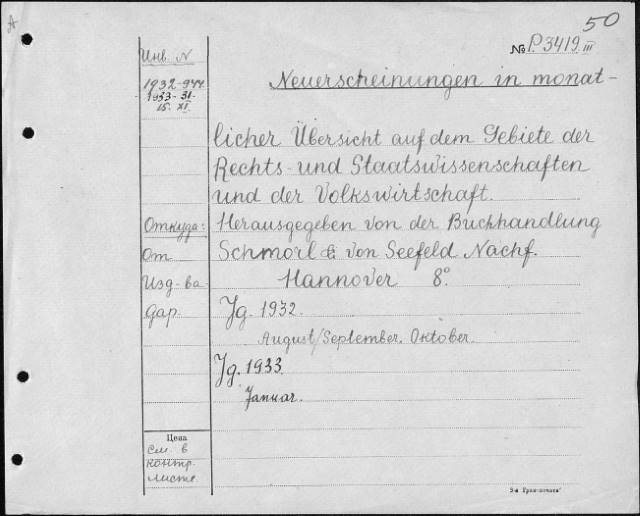 A
50
№ P.3419 III
Инв. N
1932-944
1933-31-
15. XI.
Neuerscheinungen in monat-
licher Übersicht auf dem Gebiete der
Rechts- und Staatswissenschaften
und der Volkswirtschaft.
Откуда: Herausgegeben von der Buchhandlung
От Schmorl & von Seefeld Nachf.
Изд-ва Hannover 8°
дар. Jg. 1932.
August/September. Oktober.
Jg. 1933.
Januar.
Цена
см. в
контр.
листе.